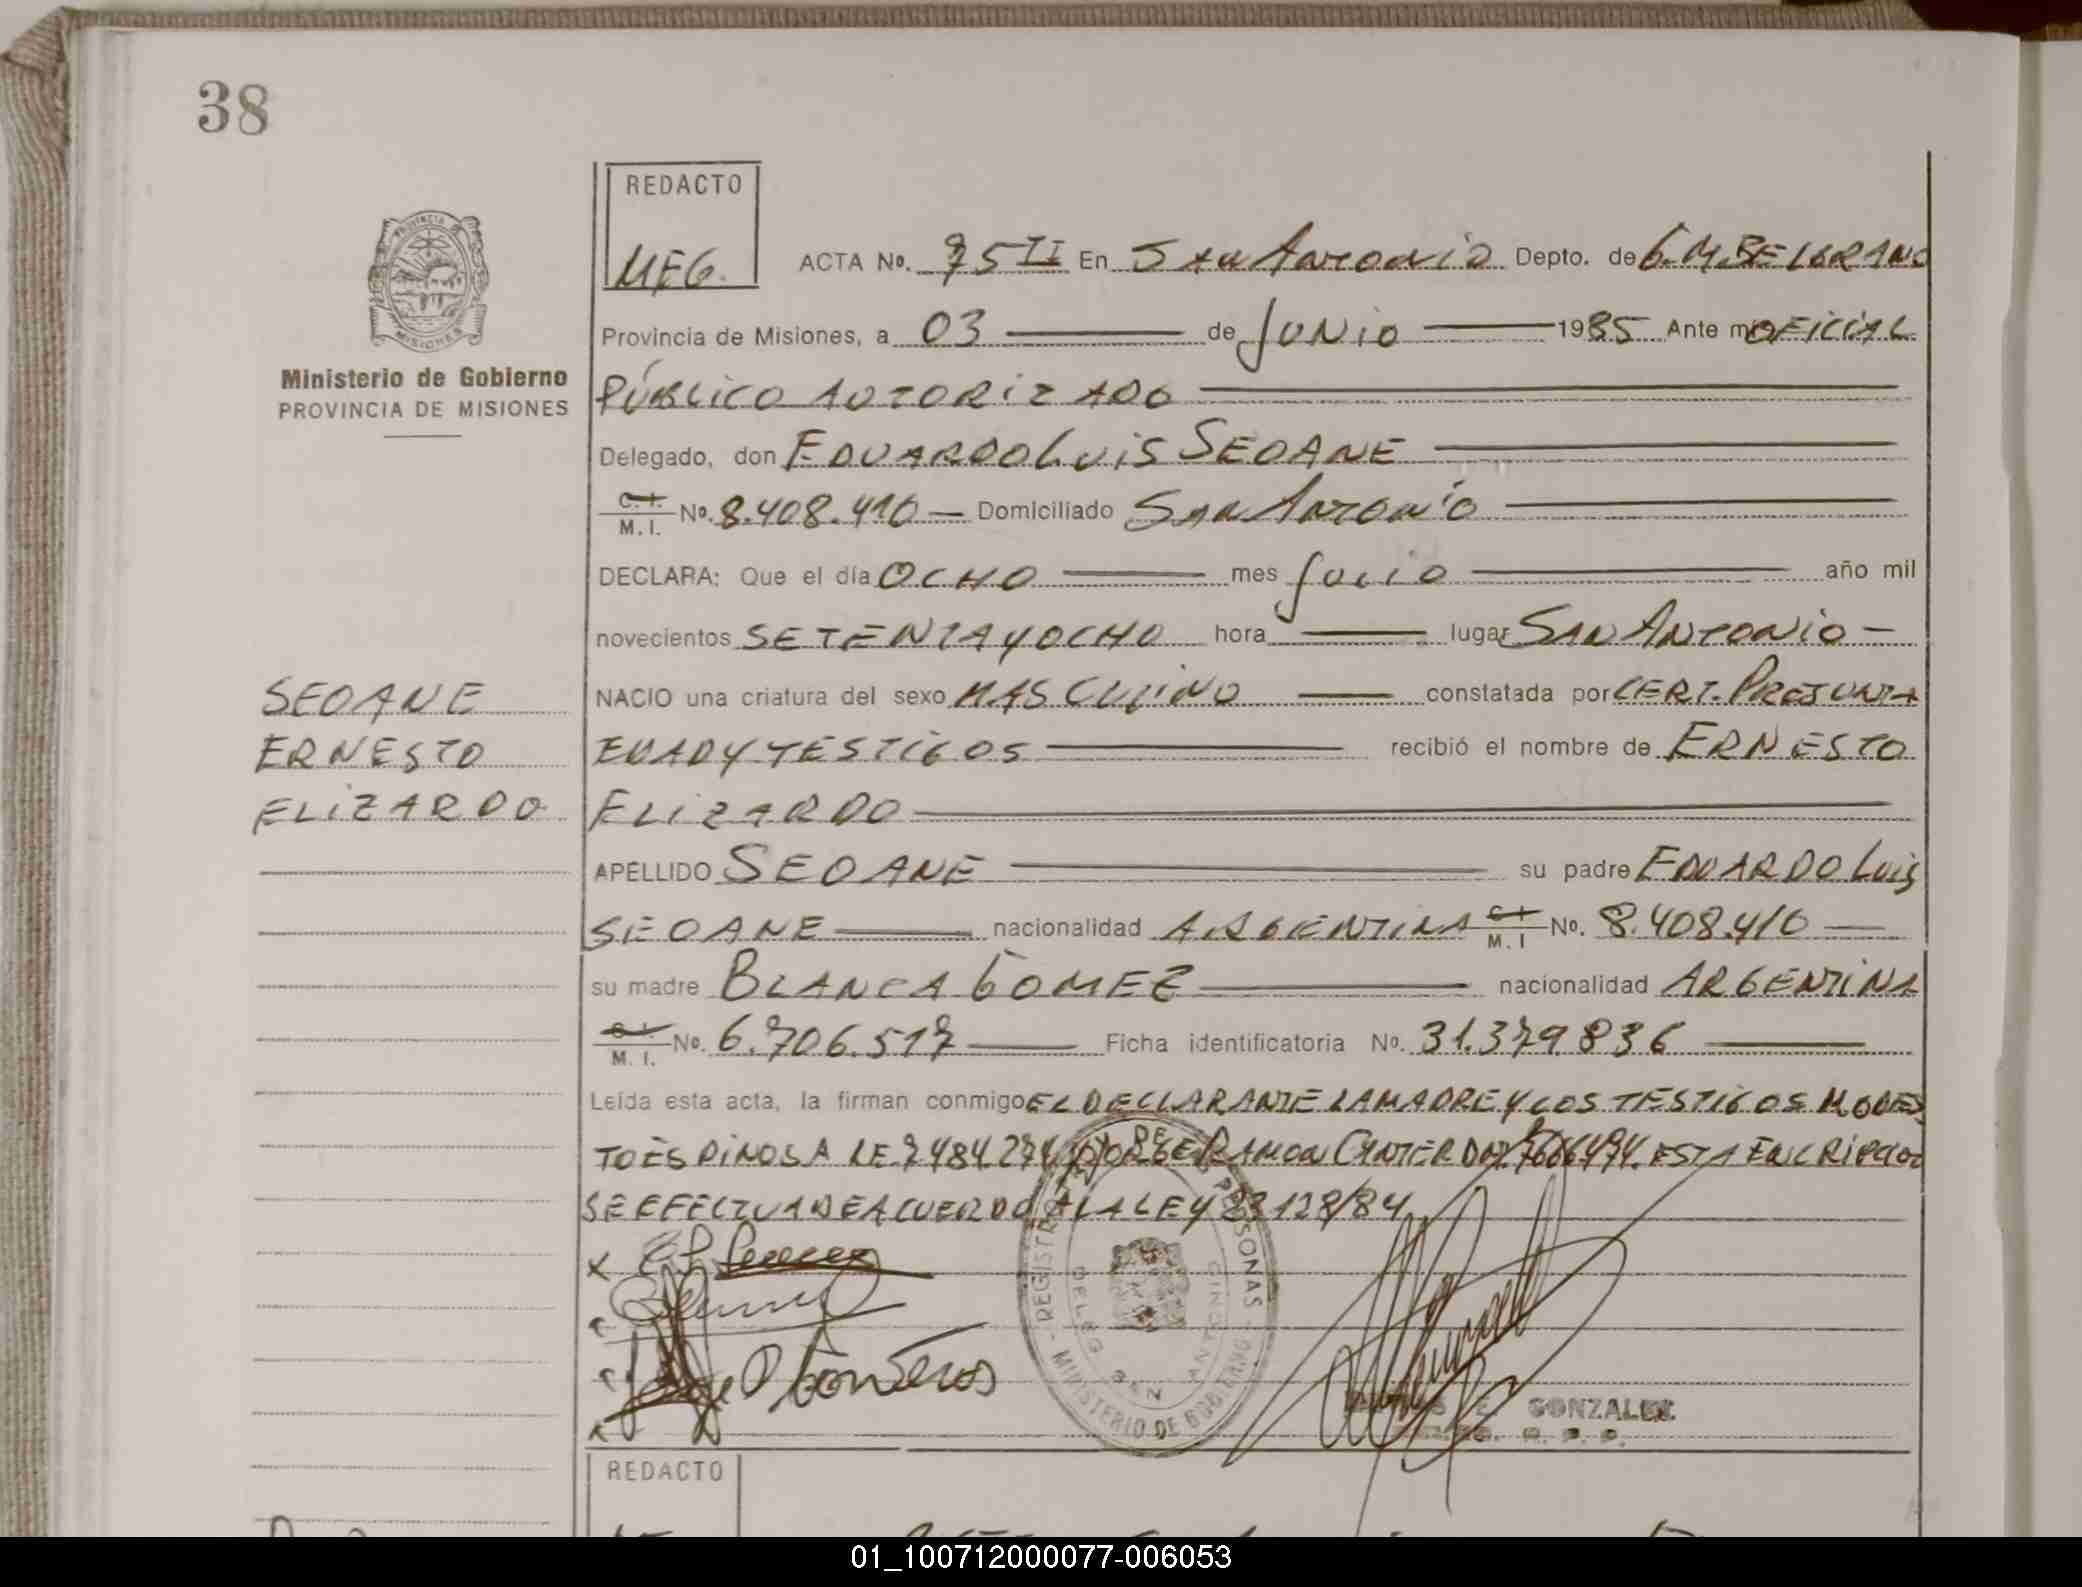 38
REDACTO
MEG.
ACTA No. 75 II En San Antonio Depto. de G.M. BELGRANO
Provincia de Misiones, a 03 de Junio 1985 Ante mi OFICIAL
PÚBLICO AUTORIZADO
Ministerio de Gobierno
PROVINCIA DE MISIONES
Delegado, don EDUARDO LUIS SEOANE
C.I. M.I. No. 8.408.410 Domiciliado San Antonio
DECLARA: Que el día OCHO mes Julio año mil
novecientos SETENTA Y OCHO hora lugar San Antonio
SEOANE
ERNESTO
ELIZARDO
NACIO una criatura del sexo MASCULINO constatada por CERT. PRESUNTA
EDAD Y TESTIGOS recibió el nombre de ERNESTO
ELIZARDO
APELLIDO SEOANE su padre EDUARDO LUIS
SEOANE nacionalidad ARGENTINA C.I. M.I No. 8.408.410
su madre BLANCA GOMEZ nacionalidad ARGENTINA
C.I. M.I. No. 6.706.517 Ficha identificatoria No. 31.379.836
Leída esta acta, la firman conmigo EL DECLARANTE LA MADRE Y LOS TESTIGOS MODES
TO ESPINOSA LE. JORGE RAMON ESTA ENCRIPCION
SE EFECTUA DE ACUERDO A LA LEY 23128/84
REGISTRO DE PERSONAS
DELEG SAN ANTONIO
MINISTERIO DE GOBIERNO
E. GONZALEZ
REDACTO
01_100712000077-006053